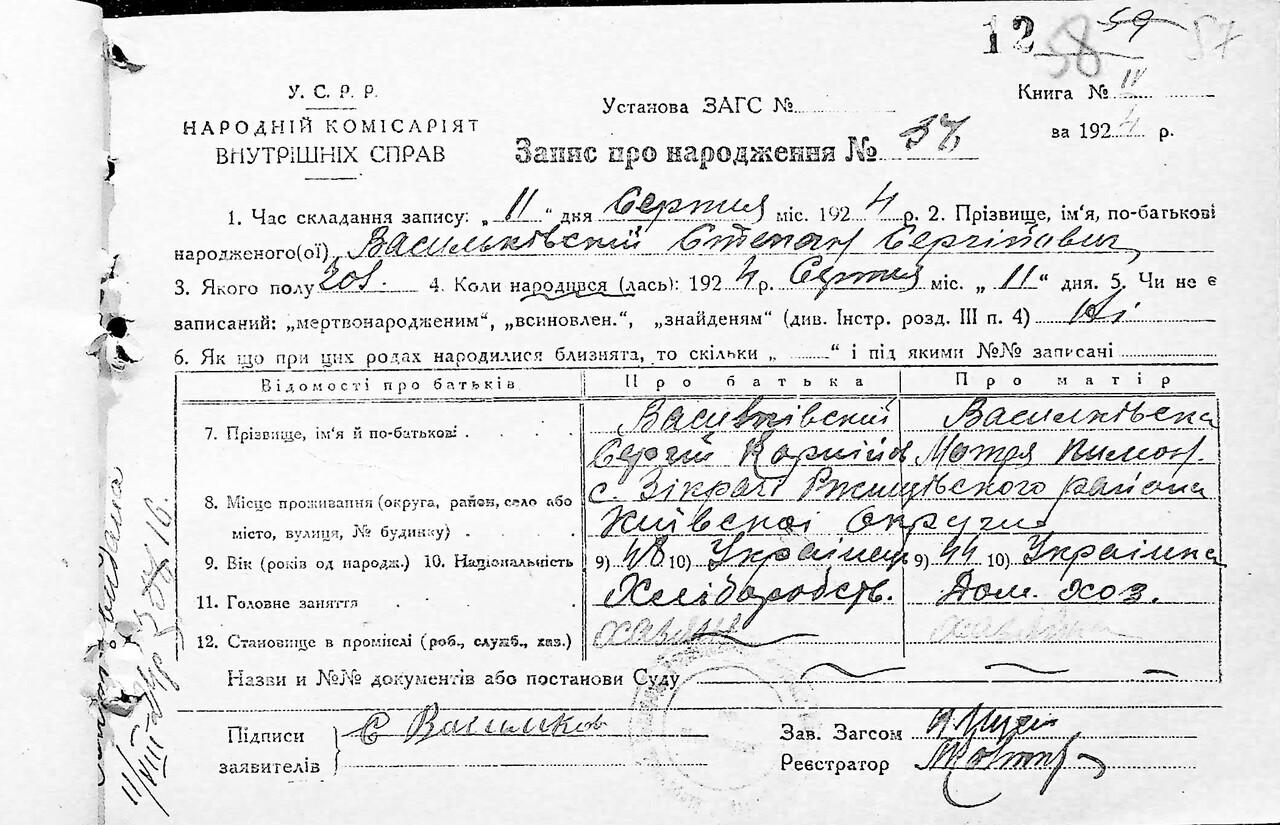 12 58 59 57
У. С. Р. Р.
НАРОДНІЙ КОМІСАРІЯТ
ВНУТРІШНІХ СПРАВ
Установа ЗАГС №
Книга № IV
за 1924 р.
Запис про народження № 37
1. Час складання запису: „ 11 “ дня Серпня міс. 1924 р. 2. Прізвище, ім'я, по-батькові
народженого(ої) Васильківский Степан Сергійович
3. Якого полу чол. 4. Коли народився (лась): 1924 р. Серпня міс. „ 11 “ дня. 5. Чи не є
записаний: „мертвонародженим“, „всиновлен.“, „знайденям“ (див. Інстр. розд. III п. 4) Ні
6. Як що при цих родах народилися близнята, то скільки „ “ і під якими №№ записані
Відомості про батьків Про батька Про матір
7. Прізвище, ім'я й по-батькові Васильківский Василківска
Сергій Корнійов Мотря Пимон.
8. Місце проживання (округа, район, село або с. Зікрачі Ржищівского района
місто, вулиця, № будинку) Київскоі Округи
9. Вік (років од народж.) 10. Національність 9) 48 10) Українец 9) 44 10) Українка
11. Головне заняття Хліборобств. Дом. Хоз.
12. Становище в промислі (роб., служб., хаз.) хазяин
Назви и №№ документів або постанови Суду
Підписи
заявителів
С Васильков
Зав. Загсом
Реєстратор
11/VIII